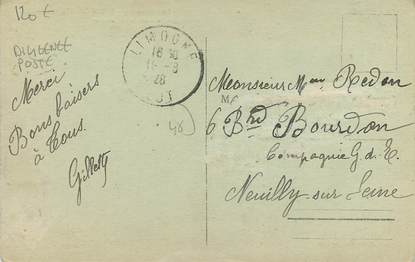 120 €
DILIGENCE
POSTE
Merci
Bons baisers
à tous.
Gilletty
LIMOGNE
16 30
28
LOT
(46)
Monsieur Redon
6 Bd Bourdon
Compagnie G. d. E.
Neuilly-sur-Seine